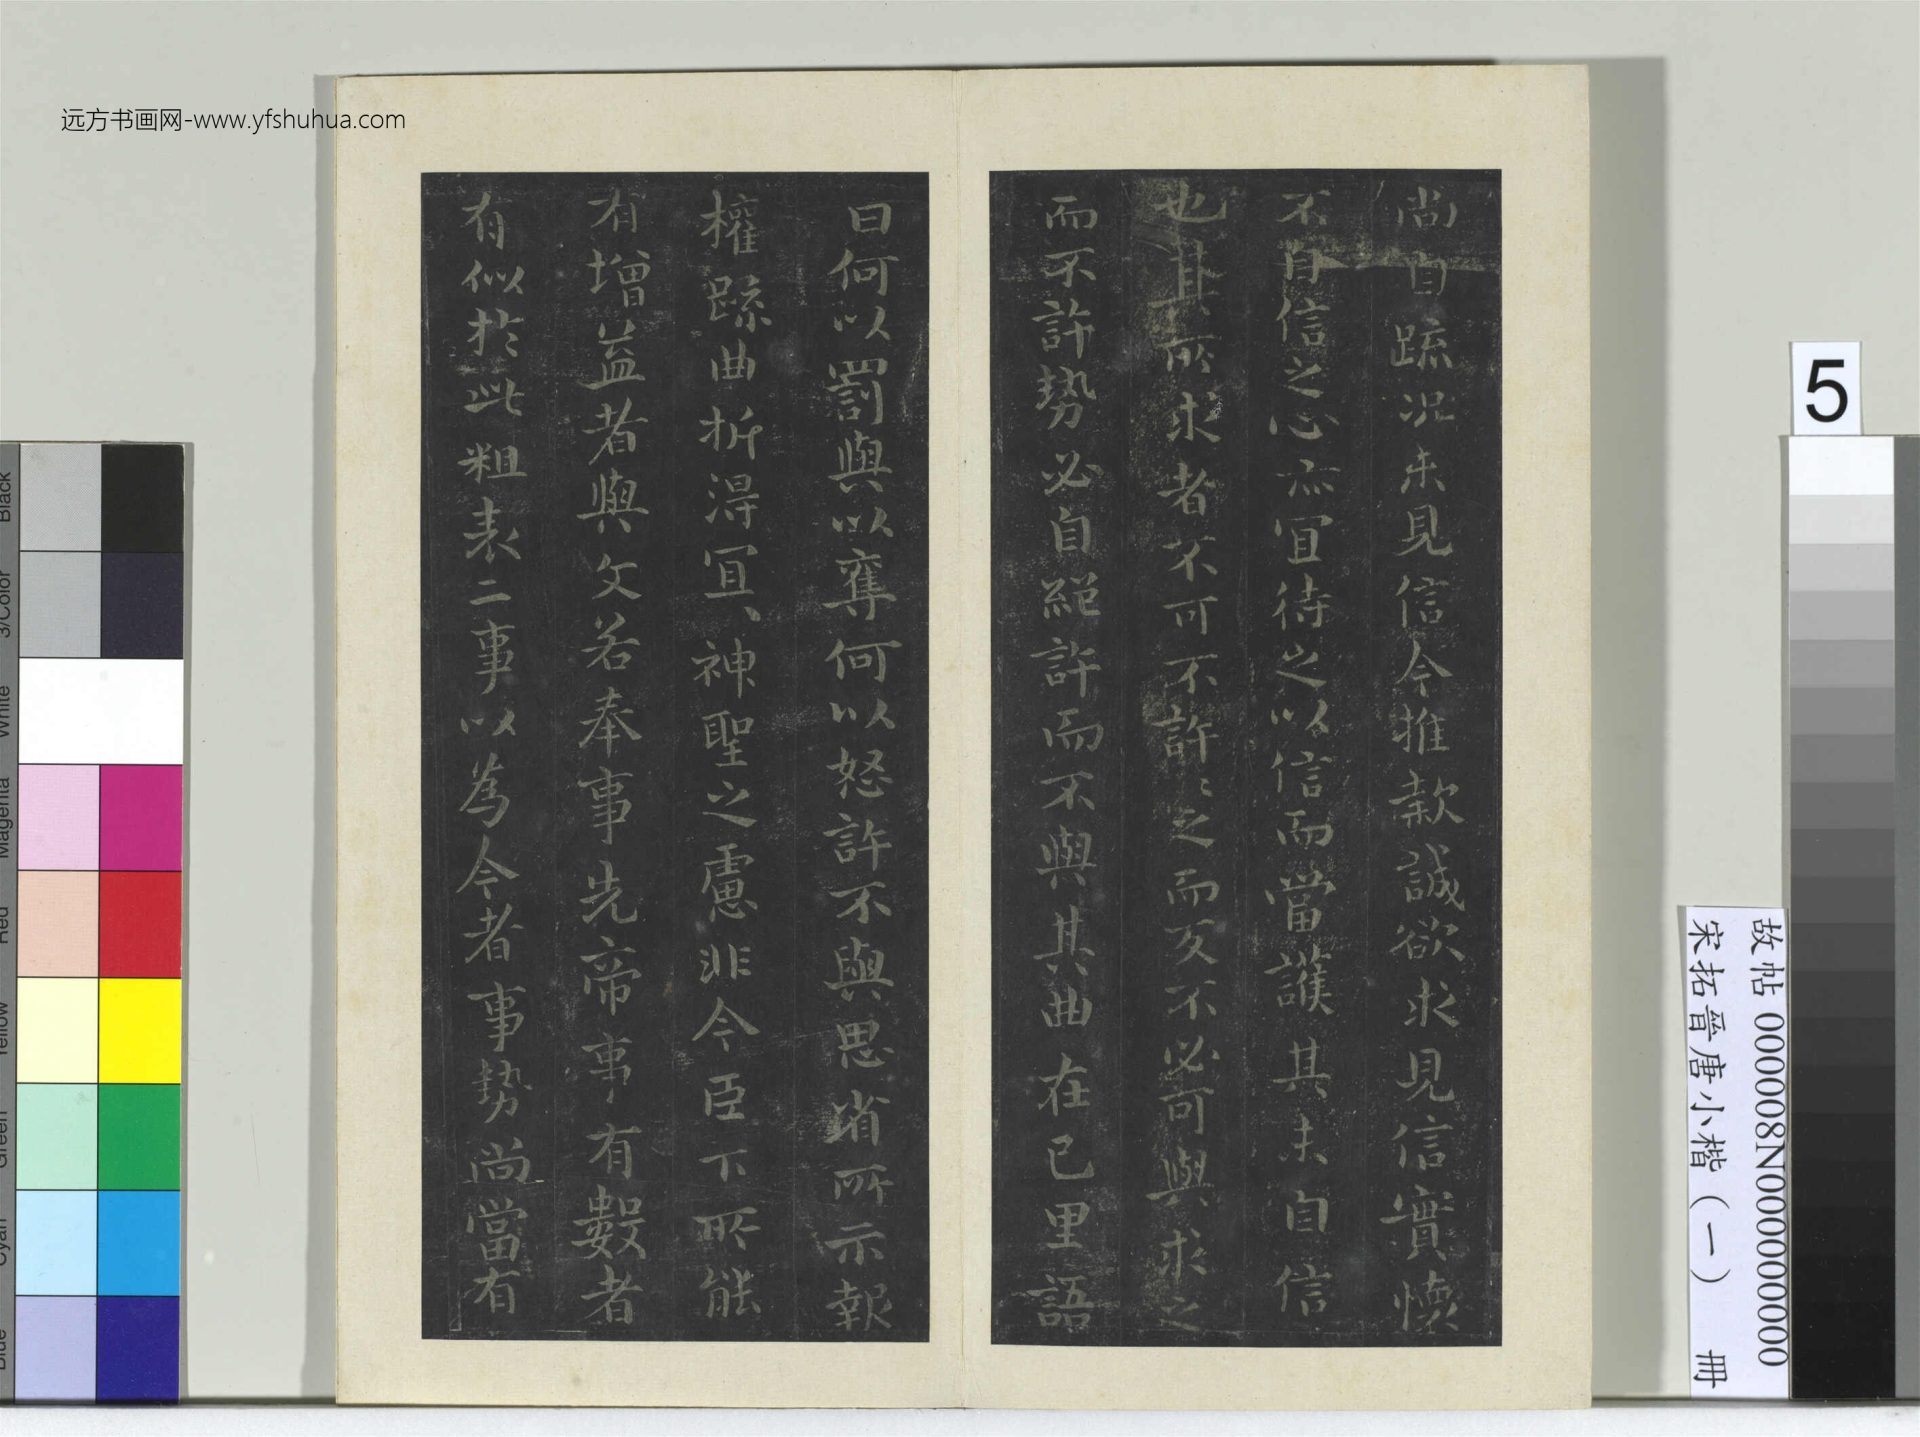 远方书画网-www.yfshuhua.com
尚自疏况未见信今推款誠欲求見信實懷
不自信之心亦冝待之以信而當護其未自信
也其所求者不可不許許之而反不必可與求之
而不許勢必自絕許而不與其曲在己里語
曰何以罰與以奪何以怒許不與思省所示報
權疏曲折得冝神聖之慮非今臣下所能
有增益者與文若奉事先帝事有數者
有似於此粗表二事以為今者事勢尚當有
5
故帖 000008N000000000
宋拓晋唐小楷（一） 冊
Black
3/Color
White
Magenta
Red
Yellow
Green
Cyan
Blue